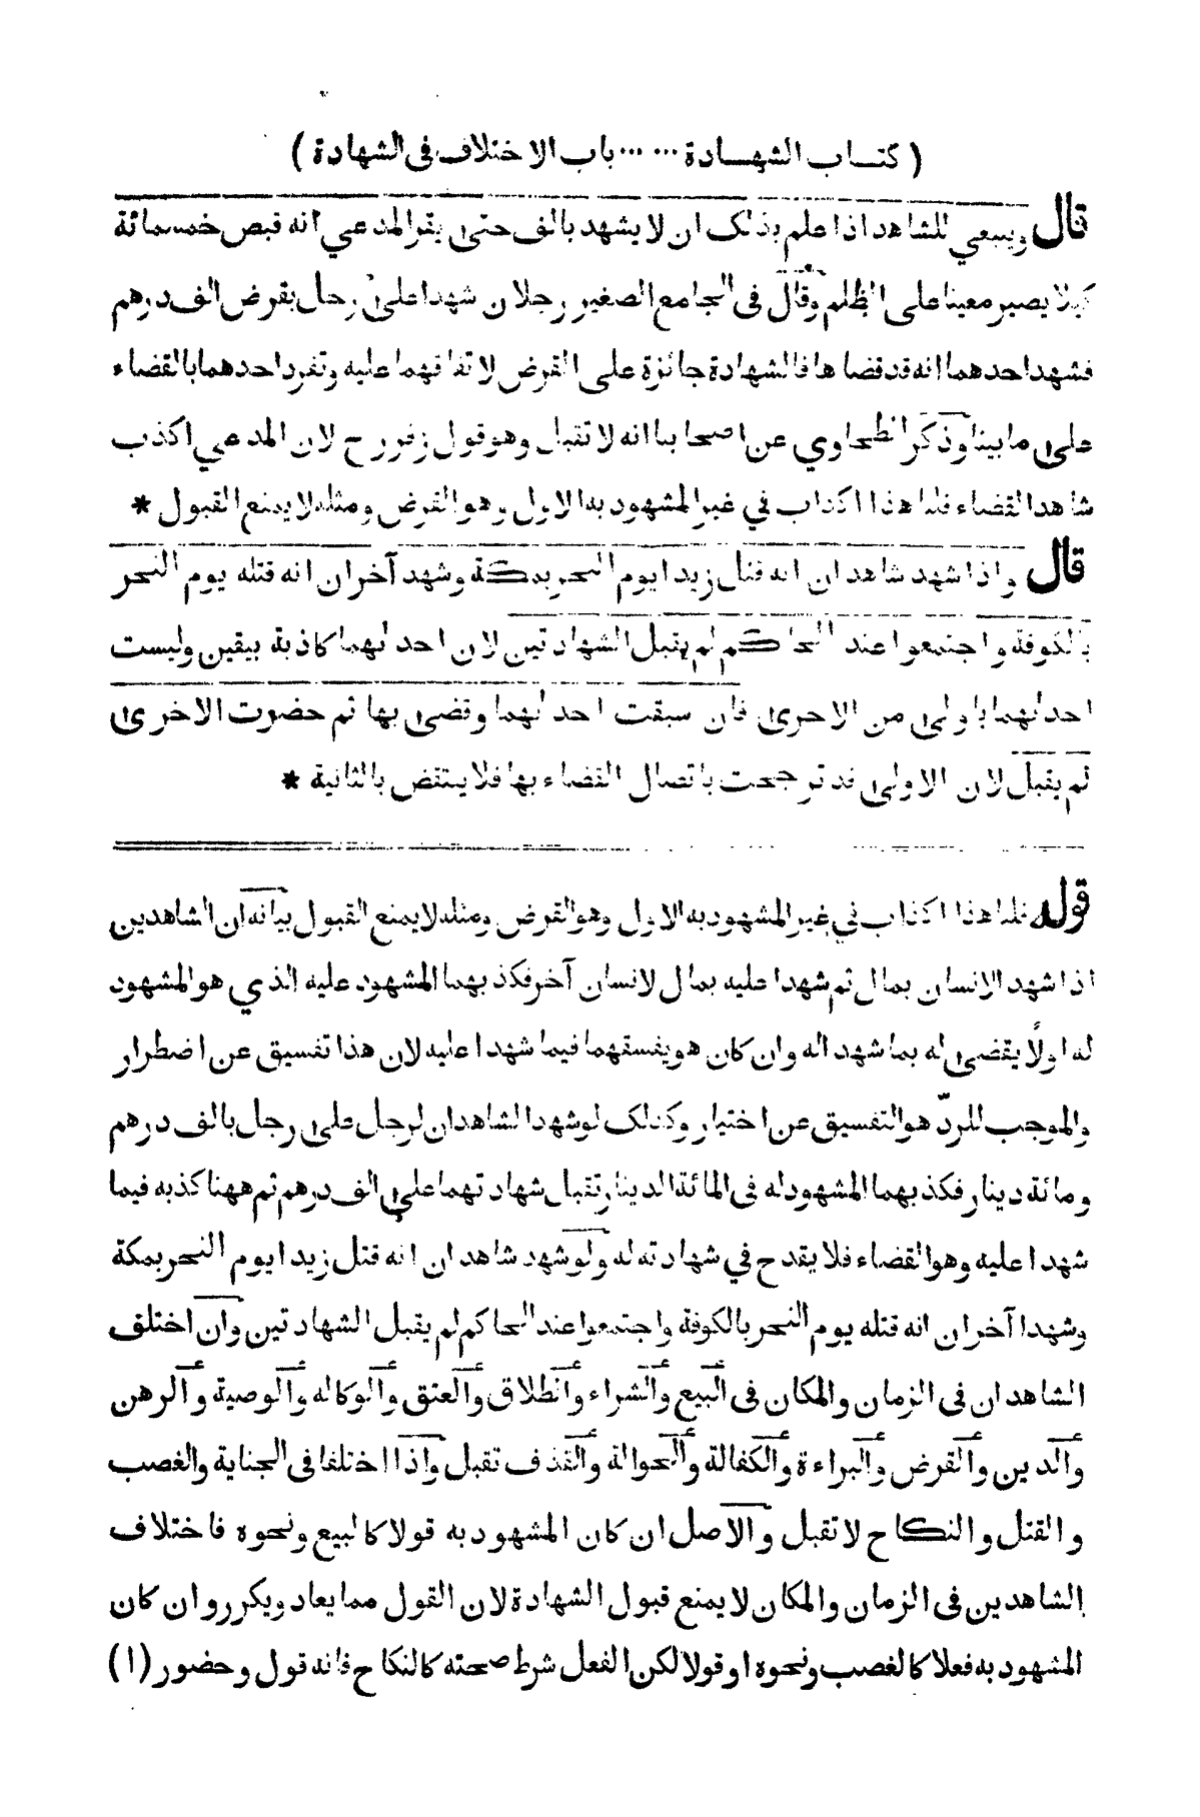 ( كتاب الشهادة ... ... باب الاختلاف في الشهادة )
قال وينبغي للشاهد اذا علم بذلك ان لا يشهد بالف حتى يقر المدعي انه قبض خمسمائة
كيلا يصير معينا على الظلم وقال في الجامع الصغير رجلان شهدا على رجل بقرض الف درهم
فشهد احدهما انه قد قضاها فالشهادة جائزة على القرض لاتفاقهما عليه وتفرد احدهما بالقضاء
على ما بينا وذكر الطحاوي عن اصحابنا انه لا تقبل وهو قول زفر رح لان المدعي اكذب
شاهد القضاء قلنا هذا اكذاب في غير المشهود به الاول وهو القرض ومثله لا يمنع القبول *
قال واذا شهد شاهدان انه قتل زيدا يوم النحر بمكة وشهد آخران انه قتله يوم النحر
بالكوفة واجتمعوا عند الحاكم لم يقبل الشهادتين لان احدٰلهما كاذبة بيقين وليست
احدٰلهما باولى من الاخرى فان سبقت احدٰلهما وقضى بها ثم حضرت الاخرى
لم يقبل لان الاولى قد ترجحت باتصال القضاء بها فلا ينتقض بالثانية *
قوله قلنا هذا اكذاب في غير المشهود به الاول وهو القرض ومثله لا يمنع القبول بيانه ان الشاهدين
اذا شهد الانسان بمال ثم شهدا عليه بمال لانسان آخر فكذبهما المشهود عليه الذي هو المشهود
له اولًا يقضى له بما شهدا له وان كان هو يفسقهما فيما شهدا عليه لان هذا تفسيق عن اضطرار
والموجب للردّ هو التفسيق عن اختيار وكذلك لو شهد الشاهدان لرجل على رجل بالف درهم
ومائة دينار فكذبهما المشهود له في المائة الدينار تقبل شهادتهما على الف درهم ثم ههنا كذبه فيما
شهدا عليه وهو القضاء فلا يقدح في شهادته له ولو شهد شاهدان انه قتل زيدا يوم النحر بمكة
وشهدا آخران انه قتله يوم النحر بالكوفة واجتمعوا عند الحاكم لم يقبل الشهادتين وان اختلف
الشاهدان في الزمان والمكان في البيع والشراء والطلاق والعتق والوكاله والوصية والرهن
والدين والقرض والبراءة والكفالة والحوالة والقذف تقبل واذا اختلفا في الجناية والغصب
والقتل والنكاح لا تقبل والاصل ان كان المشهود به قولا كالبيع ونحوه فاختلاف
الشاهدين في الزمان والمكان لا يمنع قبول الشهادة لان القول مما يعاد ويكرر وان كان
المشهود به فعلا كالغصب ونحوه او قولا لكن الفعل شرط صحته كالنكاح فانه قول وحضور (١)